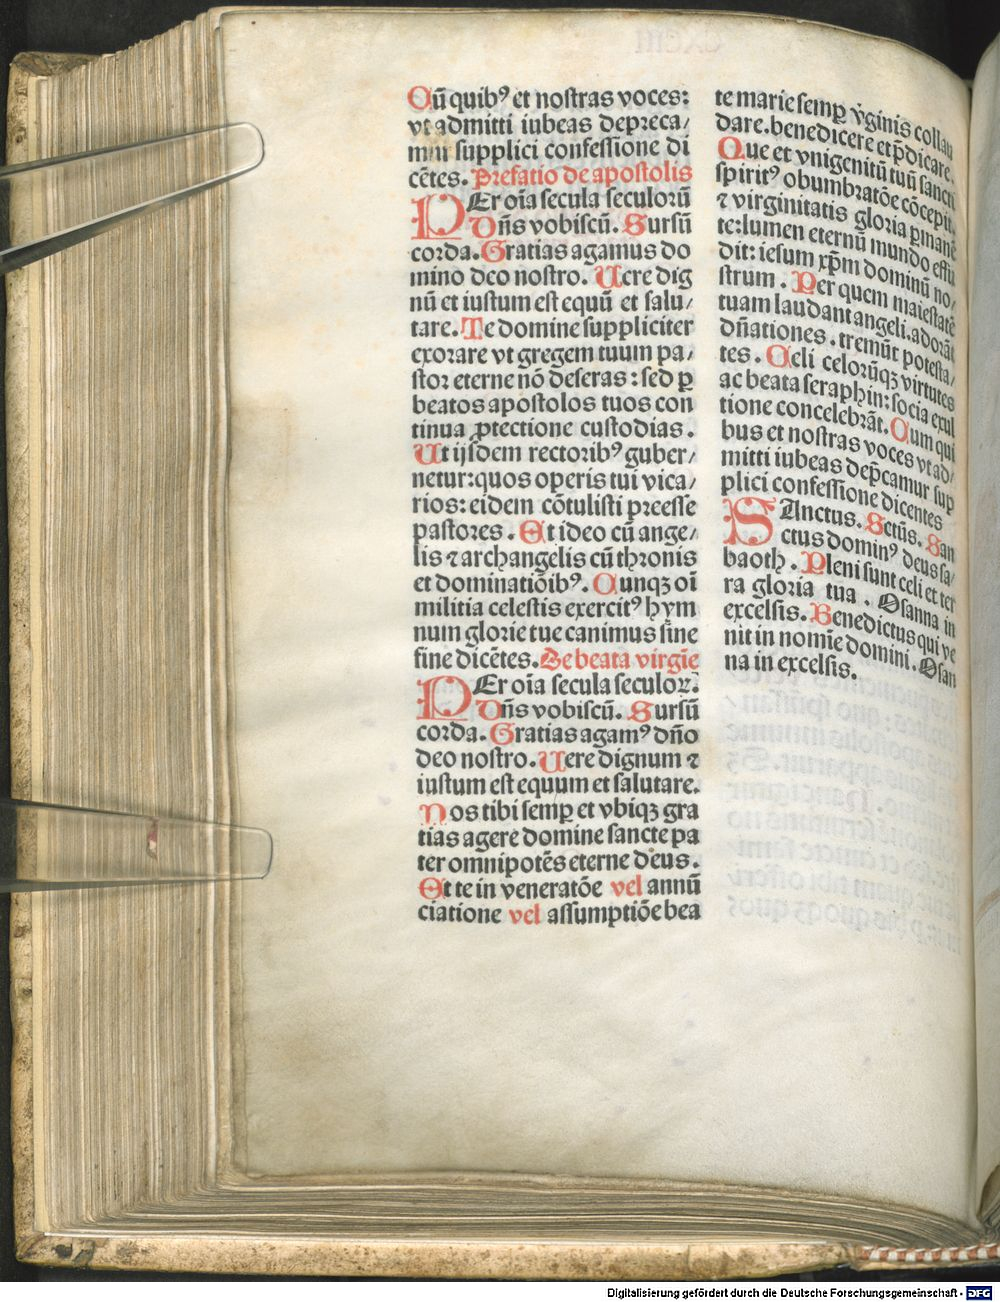 Cū quibꝰ et nostras voces:
vt admitti iubeas depreca/
mur supplici confessione di
cētes. Prefatio de apostolis
PEr oīa secula seculorū
Dn̄s vobiscū. Sursū
corda. Gratias agamus do
mino deo nostro. Uere dig
nū et iustum est equū et salu/
tare. Te domine suppliciter
exorare vt gregem tuum pa/
stor eterne nō deseras: sed ꝑ
beatos apostolos tuos con
tinua ꝓtectione custodias.
Ut ijsdem rectoribꝰ guber/
netur: quos operis tui vica/
rios: eidem cōtulisti preesse
pastores. Et ideo cū ange/
lis ⁊ archangelis cū thronis
et dominatiōibꝰ. Cunqꝫ oī
militia celestis exercitꝰ hym
num glorie tue canimus sine
fine dicētes. De beata virgīe
PEr oīa secula seculoꝝ.
Dn̄s vobiscū. Sursū
corda. Gratias agamꝰ dn̄o
deo nostro. Uere dignum ⁊
iustum est equum et salutare.
Nos tibi semꝑ et vbiqꝫ gra
tias agere domine sancte pa
ter omnipotēs eterne deus.
Et te in veneratōe vel annū
ciatione vel assumptiōe bea
te marie semꝑ v̓ginis collau
dare. benedicere et p̄dicare.
Que et vnigenitū tuū sancti
spiritꝰ obumbratōe cōcepit.
⁊ virginitatis gloria ꝑmanē
te: lumen eternū mundo effu
dit: iesum xp̄m dominū no/
strum. Per quem maiestatē
tuam laudant angeli. adorāt
dn̄ationes. tremūt potesta/
tes. Celi celorūqꝫ virtutes
ac beata seraphin: socia exul
tione concelebrāt. Cum qui
bus et nostras voces vt ad/
mitti iubeas dep̄camur sup
plici confessione dicentes
SAnctus. Sctūs. San
ctus dominꝰ deus sa/
baoth. Pleni sunt celi et ter
ra gloria tua. Osanna in
excelsis. Benedictus qui ve
nit in nomīe domini. Osan
na in excelsis.
Digitalisierung gefördert durch die Deutsche Forschungsgemeinschaft - DFG